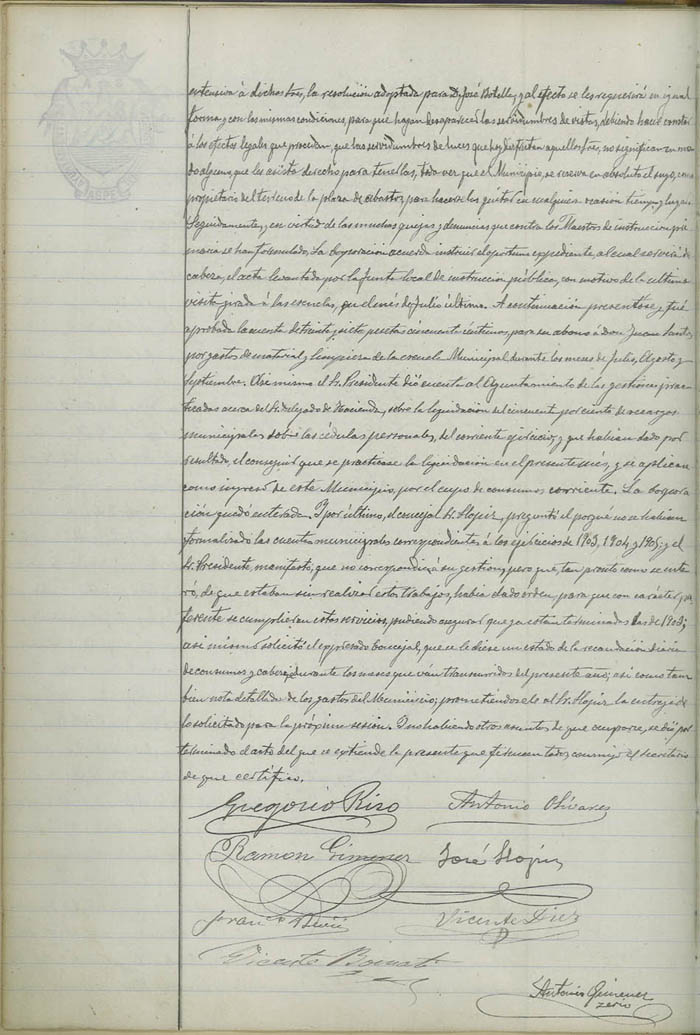 extensiva á dichos Sres, la resolución adoptada para D. José Botella, y al efecto se les requerirá en igual
forma, y con las mismas condiciones, para que hagan desaparecer las servidumbres de vistas, debiendo hacer constar
á los efectos legales que procedan, que las servidumbres de luces que hoy disfrutan aquellos Sres, no significan en mo-
do alguno, que les asista derecho para tenerlas, toda vez que el Municipio, se reserva en absoluto el suyo, como
propietario del terreno de la plaza de abastos, para hacerlas quitar en cualquier ocasión tiempo y lugar.
Seguidamente, y en virtud de las muchas quejas y denuncias que contra los Maestros de instrucción pri-
maria se han formulado, La Corporación acuerda instruir el oportuno expediente, al cual servirá de
cabeza, el acta levantada por la Junta local de instrucción pública, con motivo de la última
visita girada á las escuelas, en el mes de Julio último. A continuación presentóse y fué
aprobada la cuenta de treinta y siete pesetas cincuenta céntimos, para su abono á Don Juan Santo,
por gastos de material y limpieza de la escuela Municipal durante los meses de Julio, Agosto y
Septiembre. Así mismo el Sr. Presidente dió cuenta al Ayuntamiento de las gestiones prac-
ticadas acerca del Sr. Delegado de Hacienda, sobre la liquidación del cincuenta por ciento de recargos
municipales sobre las cédulas personales, del corriente ejercicio, y que habían dado por
resultado, el conseguir que se practicase la liquidación en el presente mes, y se aplican
como ingreso de este Municipio, por el cupo de consumos corriente. La Corpora-
ción quedó enterada. Y por último, el concejal Sr. Llopiz, preguntó el porqué no se habían
formalizado las cuentas municipales correspondientes á los ejercicios de 1903, 1904 y 1905; y el
Sr. Presidente, manifestó, que no correspondía á su gestión, pero que, tan pronto como se ente-
ró, de que estaban sin realizar estos trabajos, había dado orden, para que con carácter pre-
ferente se cumplieran estos servicios, pudiendo asegurar que ya están terminadas las de 1903;
así mismo solicitó el expresado Concejal, que se le diese un estado de la recaudación diaria
de consumos y cabezaje durante los meses que ván transcurridos del presente año; así como tam-
bien nota detallada de los gastos del Municipio; prometiéndosele al Sr. Llopiz la entrega de
lo solicitado para la próxima sesión. Y no habiendo otros asuntos de que ocuparse, se dió por
terminado el acto del que se extiende la presente que firman todos conmigo el Secretario
de que certifico.
Gregorio Rizo Antonio Olivares
Ramon Gimenez José Llopiz
Vicente Diez
Vicente
Antonio Gimenez